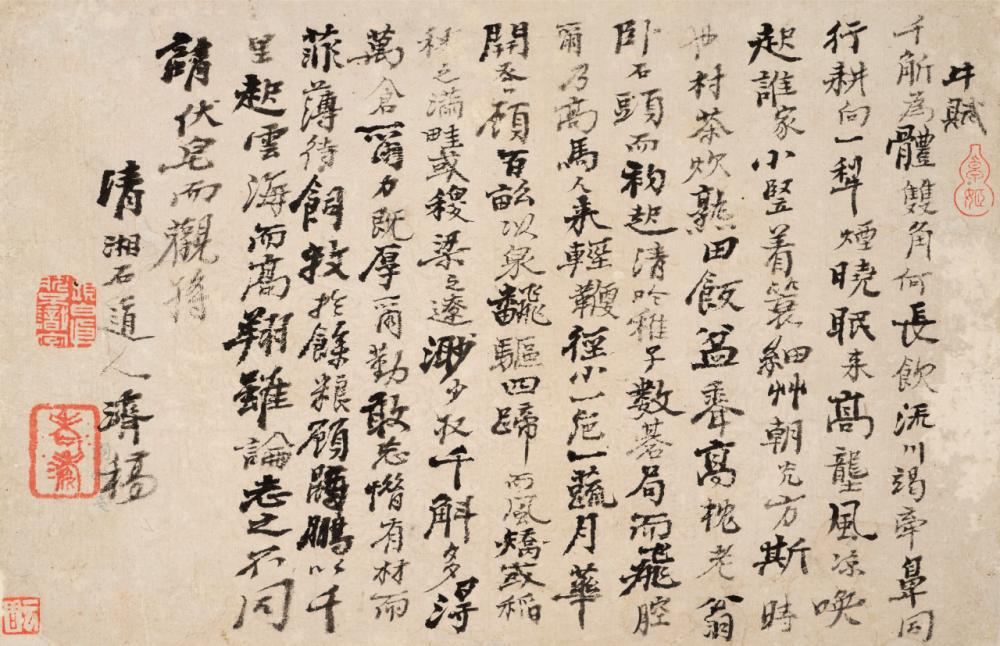 牛賦
千斛為體雙角何長飲流川竭牽鼻同
行耕向一犁煙曉眠来高壟風涼喚
起誰家小豎着簑細艸朝方斯時
也村茶炊熟田飯益香高枕老翁
卧石頭而初起清吟稚子數碁局而飛腔
爾乃高馬人乘輕徑小一蔬月華
開吾頋百畝以泉飜驅四蹄而風矯或稻
之滿畦或稷梁之遼渺少收千斛多得
萬倉爾力既厚爾勤敢忘惜有材而
菲薄待飼牧於餘粮顧鵬以千
里起雲海而高翔雖論志之不同
請伏皂而觀將
清湘石道人濟稿